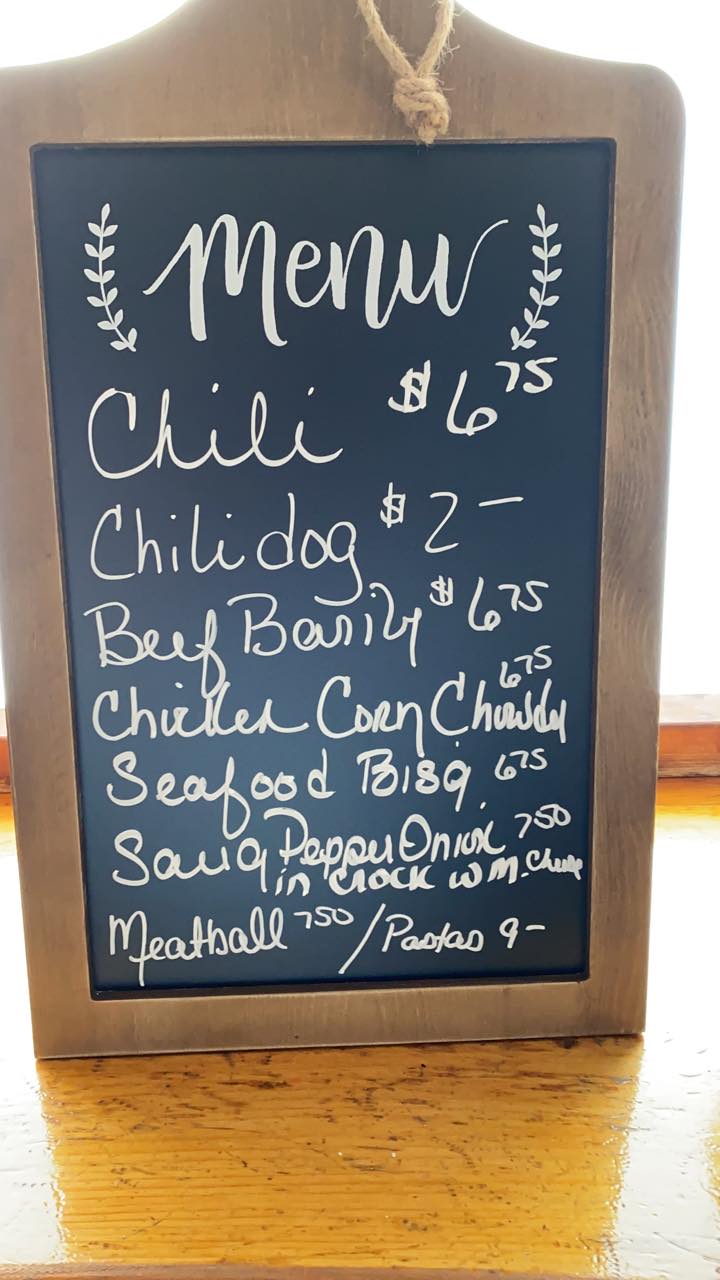 Menu
Chili $6 75
Chili dog $2 —
Beef Barily $6 75
Chicken Corn Chowder 6 75
Seafood Bisq. 6 75
Sausg Pepper Onion 7 50
in Crock w M. Cheese
Meatball 7 50 / Pastas 9 —